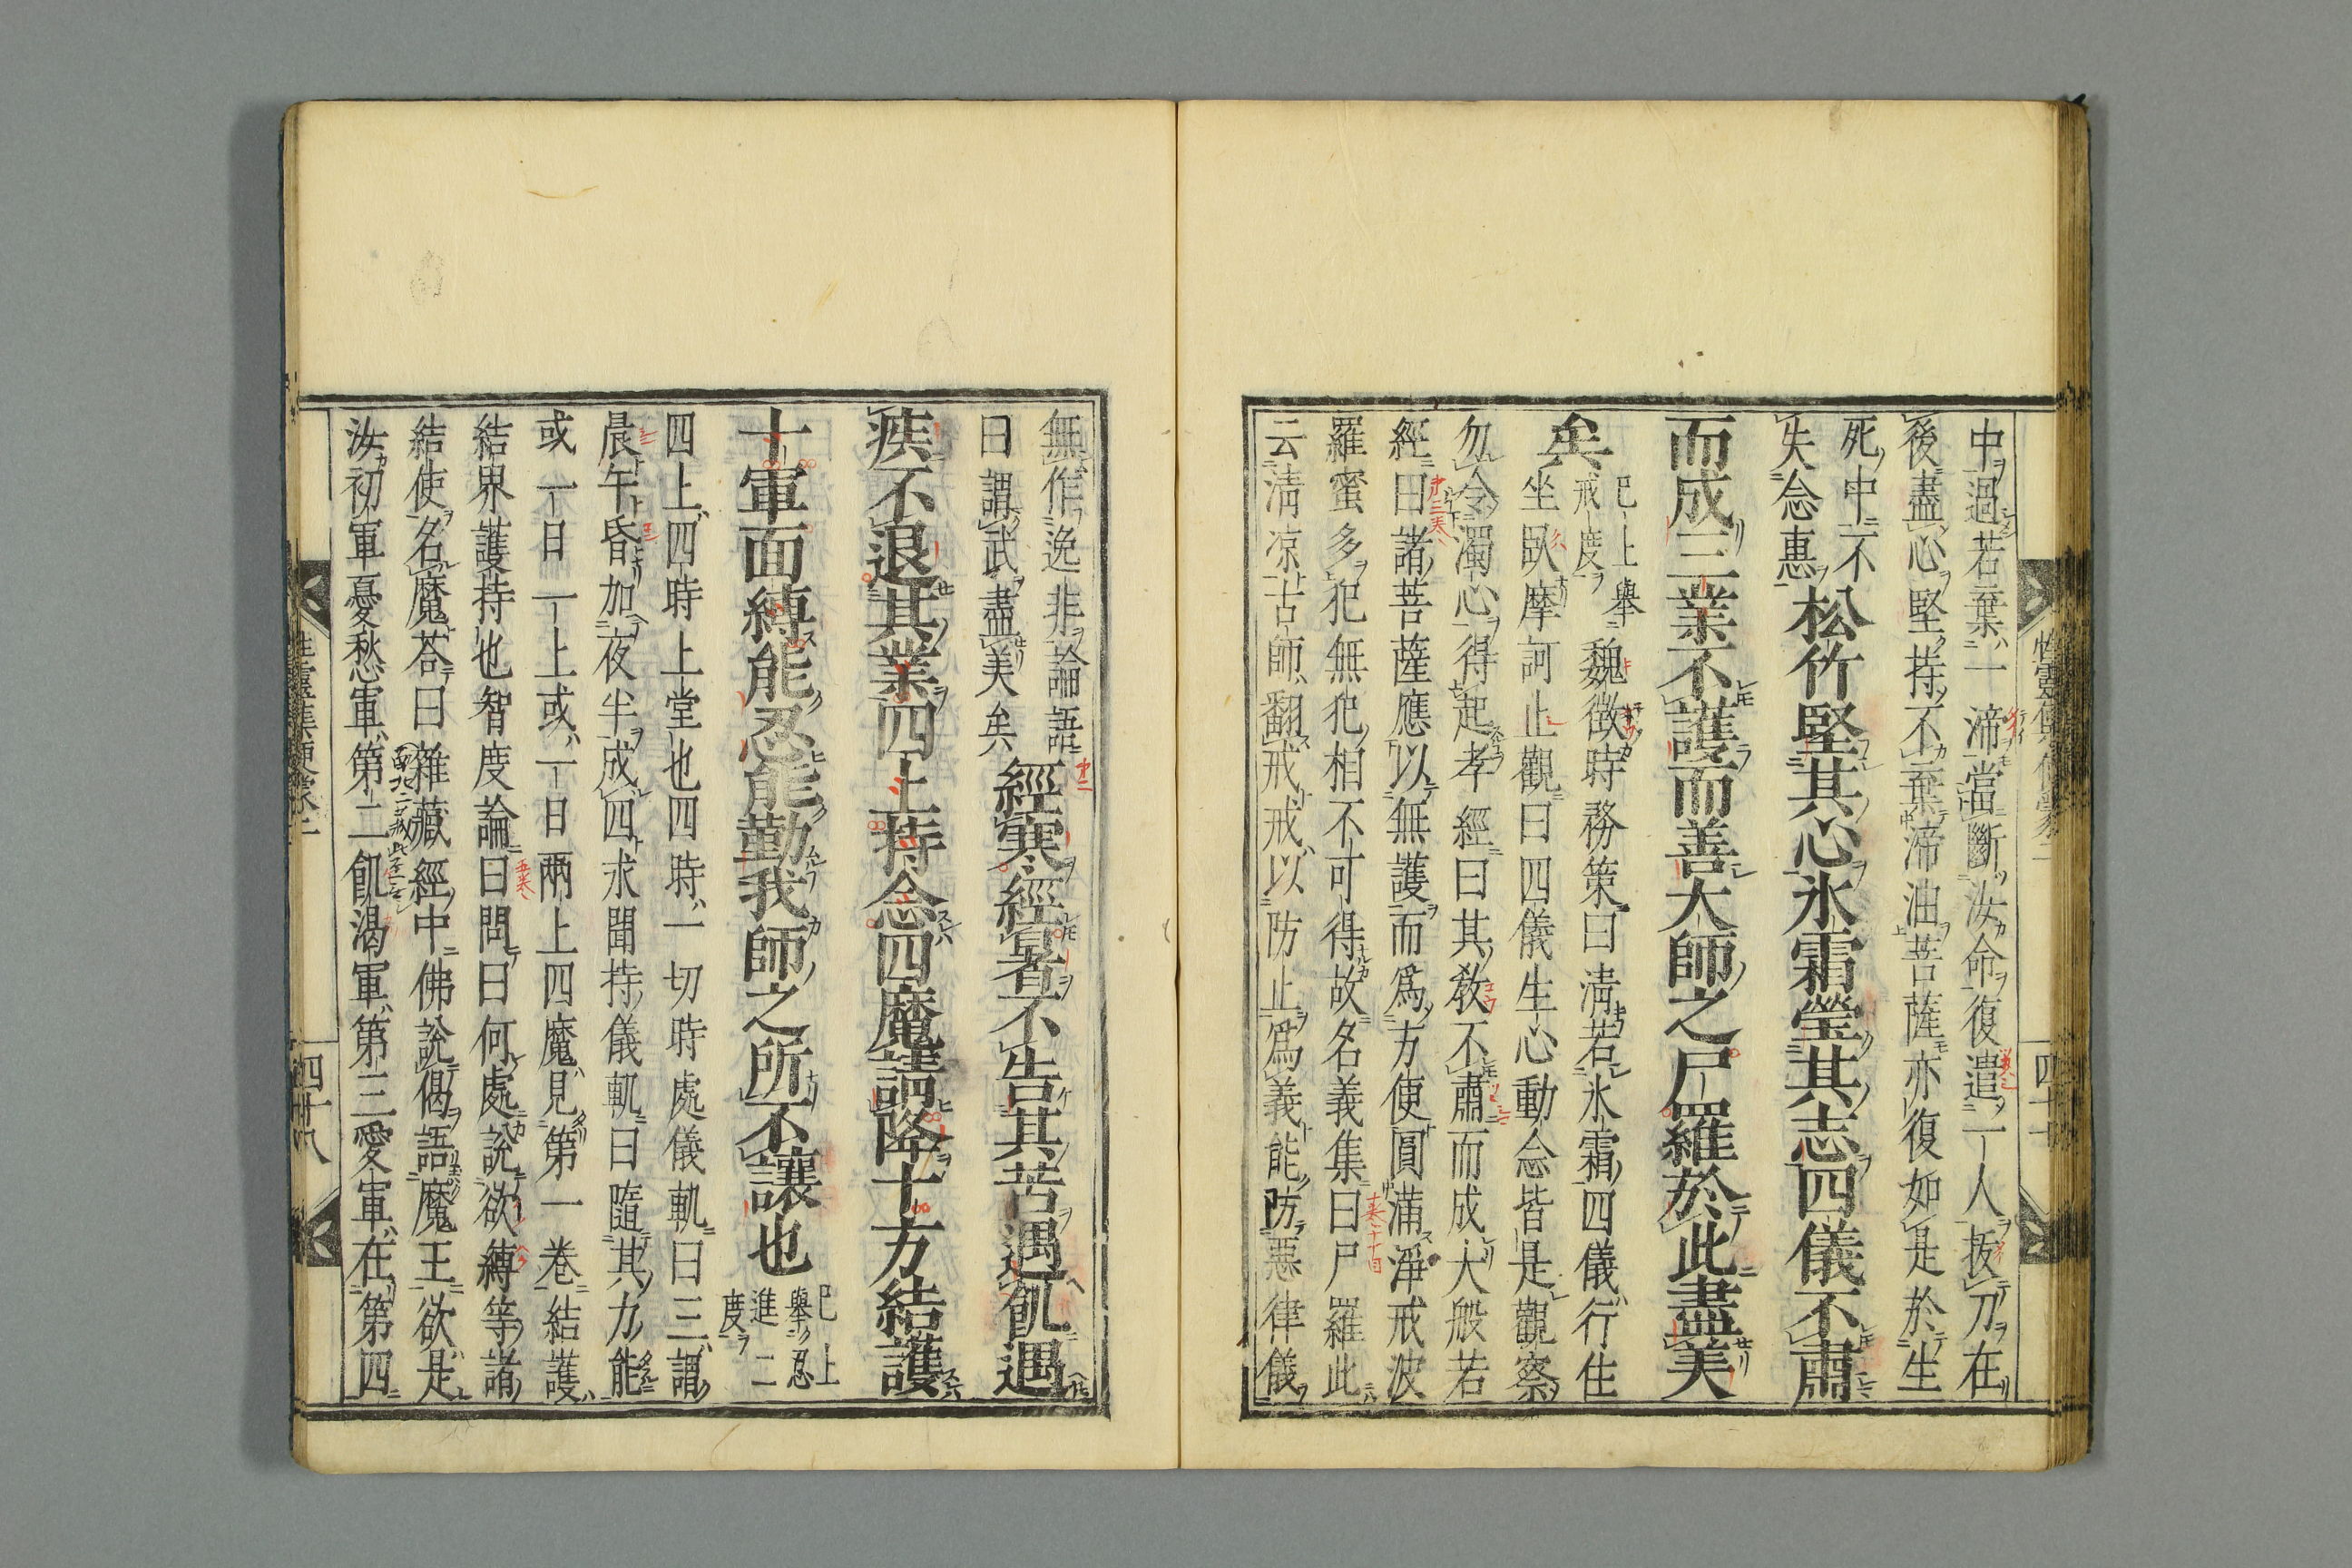 中過若棄一渧當斷汝命復遣一人拔刀在
後盡心堅持不棄渧油菩薩亦復如是於生
死中不
失念惠
松竹堅其心氷霜瑩其志四儀不肅
而成三業不護而善大師之尸羅於此盡美
矣
已上擧
戒度
魏徴時務策曰淸若氷霜四儀行住
坐臥摩訶止觀曰四儀生心動念皆是觀察
勿令濁心得起孝經曰其教不肅而成大般若
經曰諸菩薩應以無護而爲方便圓滿淨戒波
羅蜜多犯無犯相不可得故名義集曰尸羅此
云淸凉古師翻戒戒以防止爲義能防惡律儀
四十七
無作逸非論語
曰謂武盡美矣
經寒經暑不告其苦遇飢遇
疾不退其業四上持念四魔請降十方結護
十軍面縛能忍能勤我師之所不讓也
已上
擧忍
進二
度
四上四時上堂也四時一切時處儀軌曰三謂
晨午昏加夜半成四求聞持儀軌曰隨其力能
或一日一上或一日兩上四魔見第一卷結護
結界護持也智度論曰問曰何處說欲縛等諸
結使名魔荅曰雜藏經中佛說偈語魔王欲是
汝初軍憂愁軍第二飢渴軍第三愛軍在第四
四十八